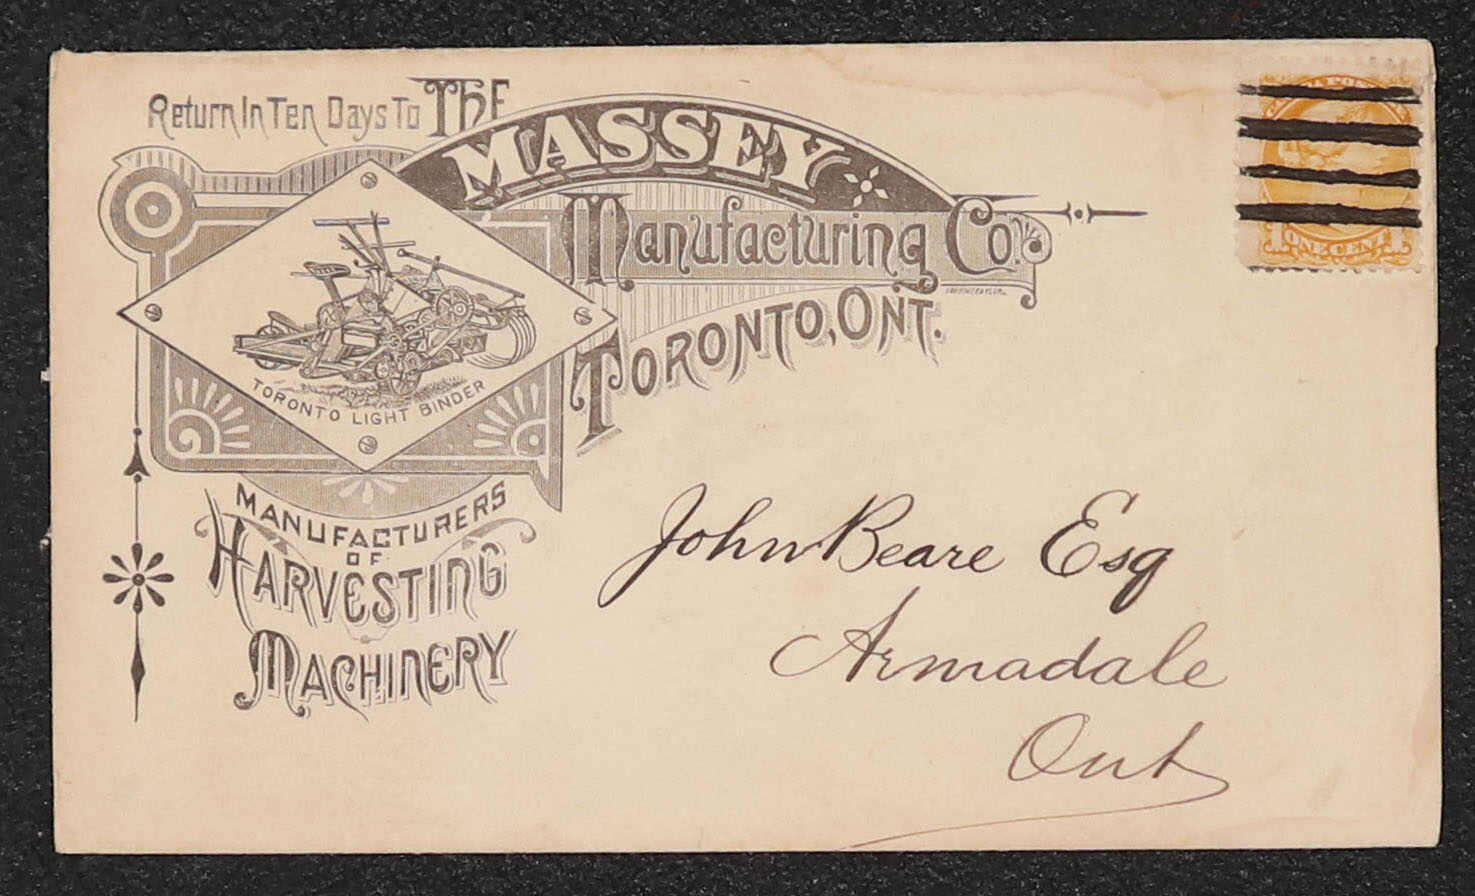 Return In Ten Days To THE
MASSEY
Manufacturing Co.
TORONTO, ONT.
TORONTO LIGHT BINDER
MANUFACTURERS
OF
HARVESTING
MACHINERY
ONE CENT
John Beare Esq
Armadale
Ont